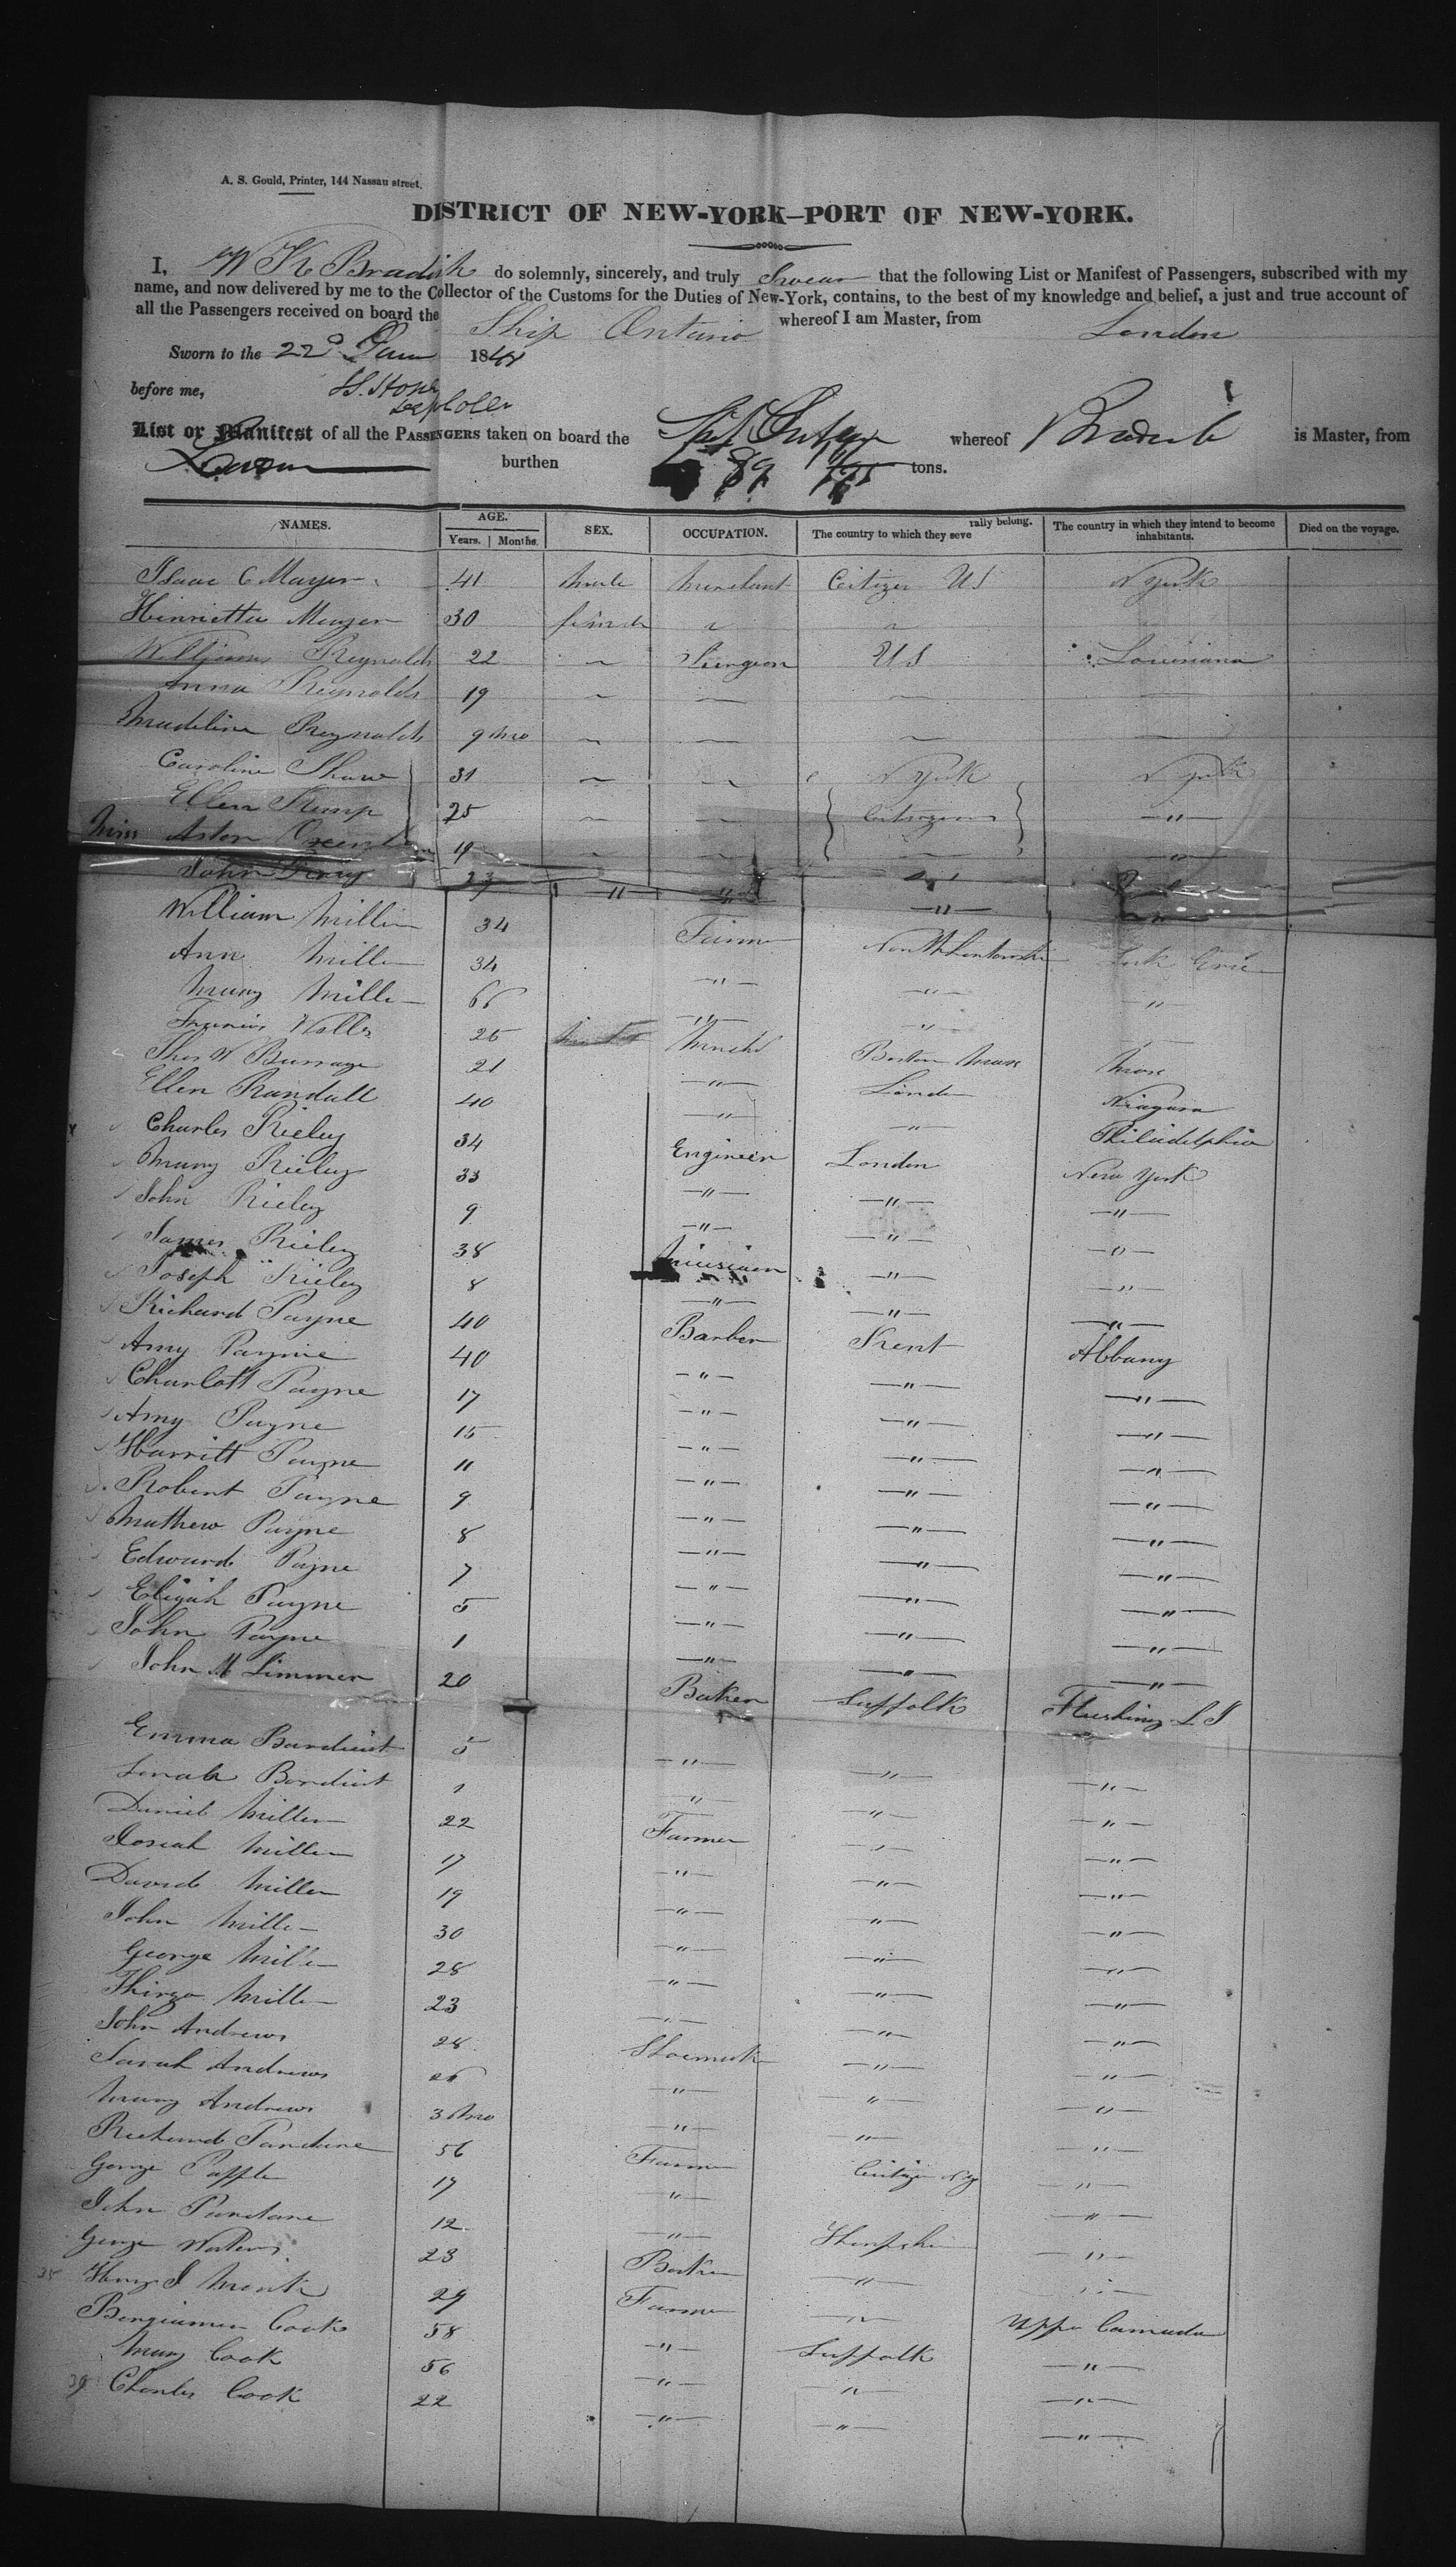 A. S. Gould, Printer, 144 Nassau street.
DISTRICT OF NEW-YORK—PORT OF NEW-YORK.
I, W K Bradish do solemnly, sincerely, and truly Swear that the following List or Manifest of Passengers, subscribed with my
name, and now delivered by me to the Collector of the Customs for the Duties of New-York, contains, to the best of my knowledge and belief, a just and true account of
all the Passengers received on board the Ship Ontario whereof I am Master, from London
Sworn to the 22d 184
before me,
List or Manifest of all the PASSENGERS taken on board the whereof Bradish is Master, from
London burthen tons.
NAMES. AGE. SEX. OCCUPATION. The country to which they severally belong. The country in which they intend to become inhabitants. Died on the voyage.
Years. Months.
Isaac C Mayer 41 male Merchant Citizen US N York
Henrietta Mayer 30 female " "
William Reynolds 22 " Surgeon US Louisiana
Anna Reynolds 19 " " " "
Madeline Reynolds 9 mo " " " "
Caroline Shaw 31 " " N York N York
Ellen Kemp 25 " " Citizens "
Miss Aston 19 " " " "
John 23 " " "
William Miller 34 Farmer Lake Erie
Ann Miller 34 " " "
Mary Miller 66 " "
Francis Wells 25 Mercht Boston Mass Mass
Thos W Burrage 21 " London Niagara
Ellen Randall 40 " " Philidelphia
Charles Rieley 34 Engineer London New York
Mary Rieley 33 " " "
John Rieley 9 " " "
James Rieley 38 Musician " "
Joseph Rieley 8 " " "
Richard Payne 40 Barber Kent Albany
Amy Payne 40 " " "
Charlott Payne 17 " " "
Amy Payne 15 " " "
Harritt Payne 11 " " "
Robert Payne 9 " " "
Mathew Payne 8 " " "
Edward Payne 7 " " "
Elijah Payne 5 " " "
John Payne 1 " " "
John M Limmer 20 Baker Suffolk Flushing L I
Emma Bardient 5 " " "
Bardient 1 " " "
Daniel Miller 22 Farmer " "
Josiah Miller 17 " " "
David Miller 19 " " "
John Miller 30 " " "
George Miller 28 " " "
Thirza Miller 23 " " "
John Andrews 28 Shoemak " "
Sarah Andrews 26 " " "
Mary Andrews 3 mo " " "
Richard 56 Farmer Citizen NY "
George 17 " "
John 12 " Hampshire "
George Waters 23 Baker " "
35 Henry J Monk 29 Farmer " Upper Canada
Bengiamen Cook 58 " Suffolk "
Mary Cook 56 " " "
39 Charles Cook 22 " " "